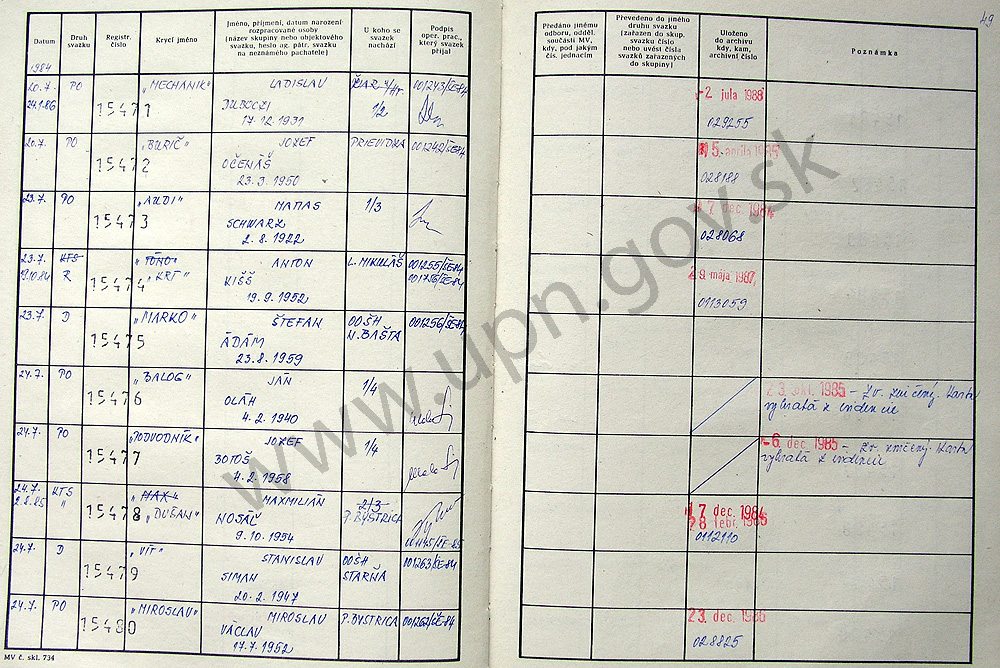 49
Datum
Druh svazku
Registr. číslo
Krycí jméno
Jméno, příjmení, datum narození rozpracované osoby (název skupiny nebo objektového svazku, heslo ag. pátr. svazku na neznámého pachatele)
U koho se svazek nachází
Podpis oper. prac., který svazek přijal
Předáno jinému odboru, odděl. součásti MV, kdy, pod jakým čís. jednacím
Převedeno do jiného druhu svazku (zařazen do skup. svazku číslo nebo uvést čísla svazků zařazených do skupiny)
Uloženo do archivu kdy, kam, archivní číslo
Poznámka
1984
20.7. PO „MECHANIK" LADISLAV 001243/ČE-84 -2 jula 1988
24.1.86 15471 1/2
17.12.1931 029255
20.7. PO „BURIČ" JOZEF PRIEVIDZA 001242/ČE-84
15472 OČENÁŠ 028188
23.3.1950
23.7. PO „AUDI" 1/3
15473 SCHWARZ 028068
2.8.1922
23.7. KTS „TÓNO" ANTON L. MIKULÁŠ 001255/ČE-84
19.10.84 R 15474 „KRT" KIŠŠ 001756/ČE-84 29 mája 1987
19.9.1952 0113059
23.7. D „MARKO" ŠTEFAN OOŠH 001256/ČE-84
15475 ÁDÁM N. BAŠTA
23.8.1959
24.7. PO „BALOG" JÁN 1/4
15476 OLÁH 23. okt. 1985 – Zv. zničený. Karta
4.2.1940 vybratá z evidencie
24.7. PO „PODVODNÍK" JOZEF 1/4 -6. dec. 1985 – Zv. zničený. Karta
15477 BOTOŠ vybratá z evidencie
4.2.1958
24.7. KTS „MAX" MAXMILIÁN 2/3
2.8.85 " 15478 „DUŠAN" NOSÁĽ P. BYSTRICA 17 dec. 1984
9.10.1954 28 febr. 1986
0112110
24.7. D „VÍT" STANISLAV OOŠH 001263/ČE-84
15479 SIMAN STARŇA
20.2.1947
24.7. PO „MIROSLAV" MIROSLAV P. BYSTRICA 001262/ČE-84 23. dec. 1986
15480 VÁCLAV 028825
17.7.1952
MV č. skl. 734
www.upn.gov.sk